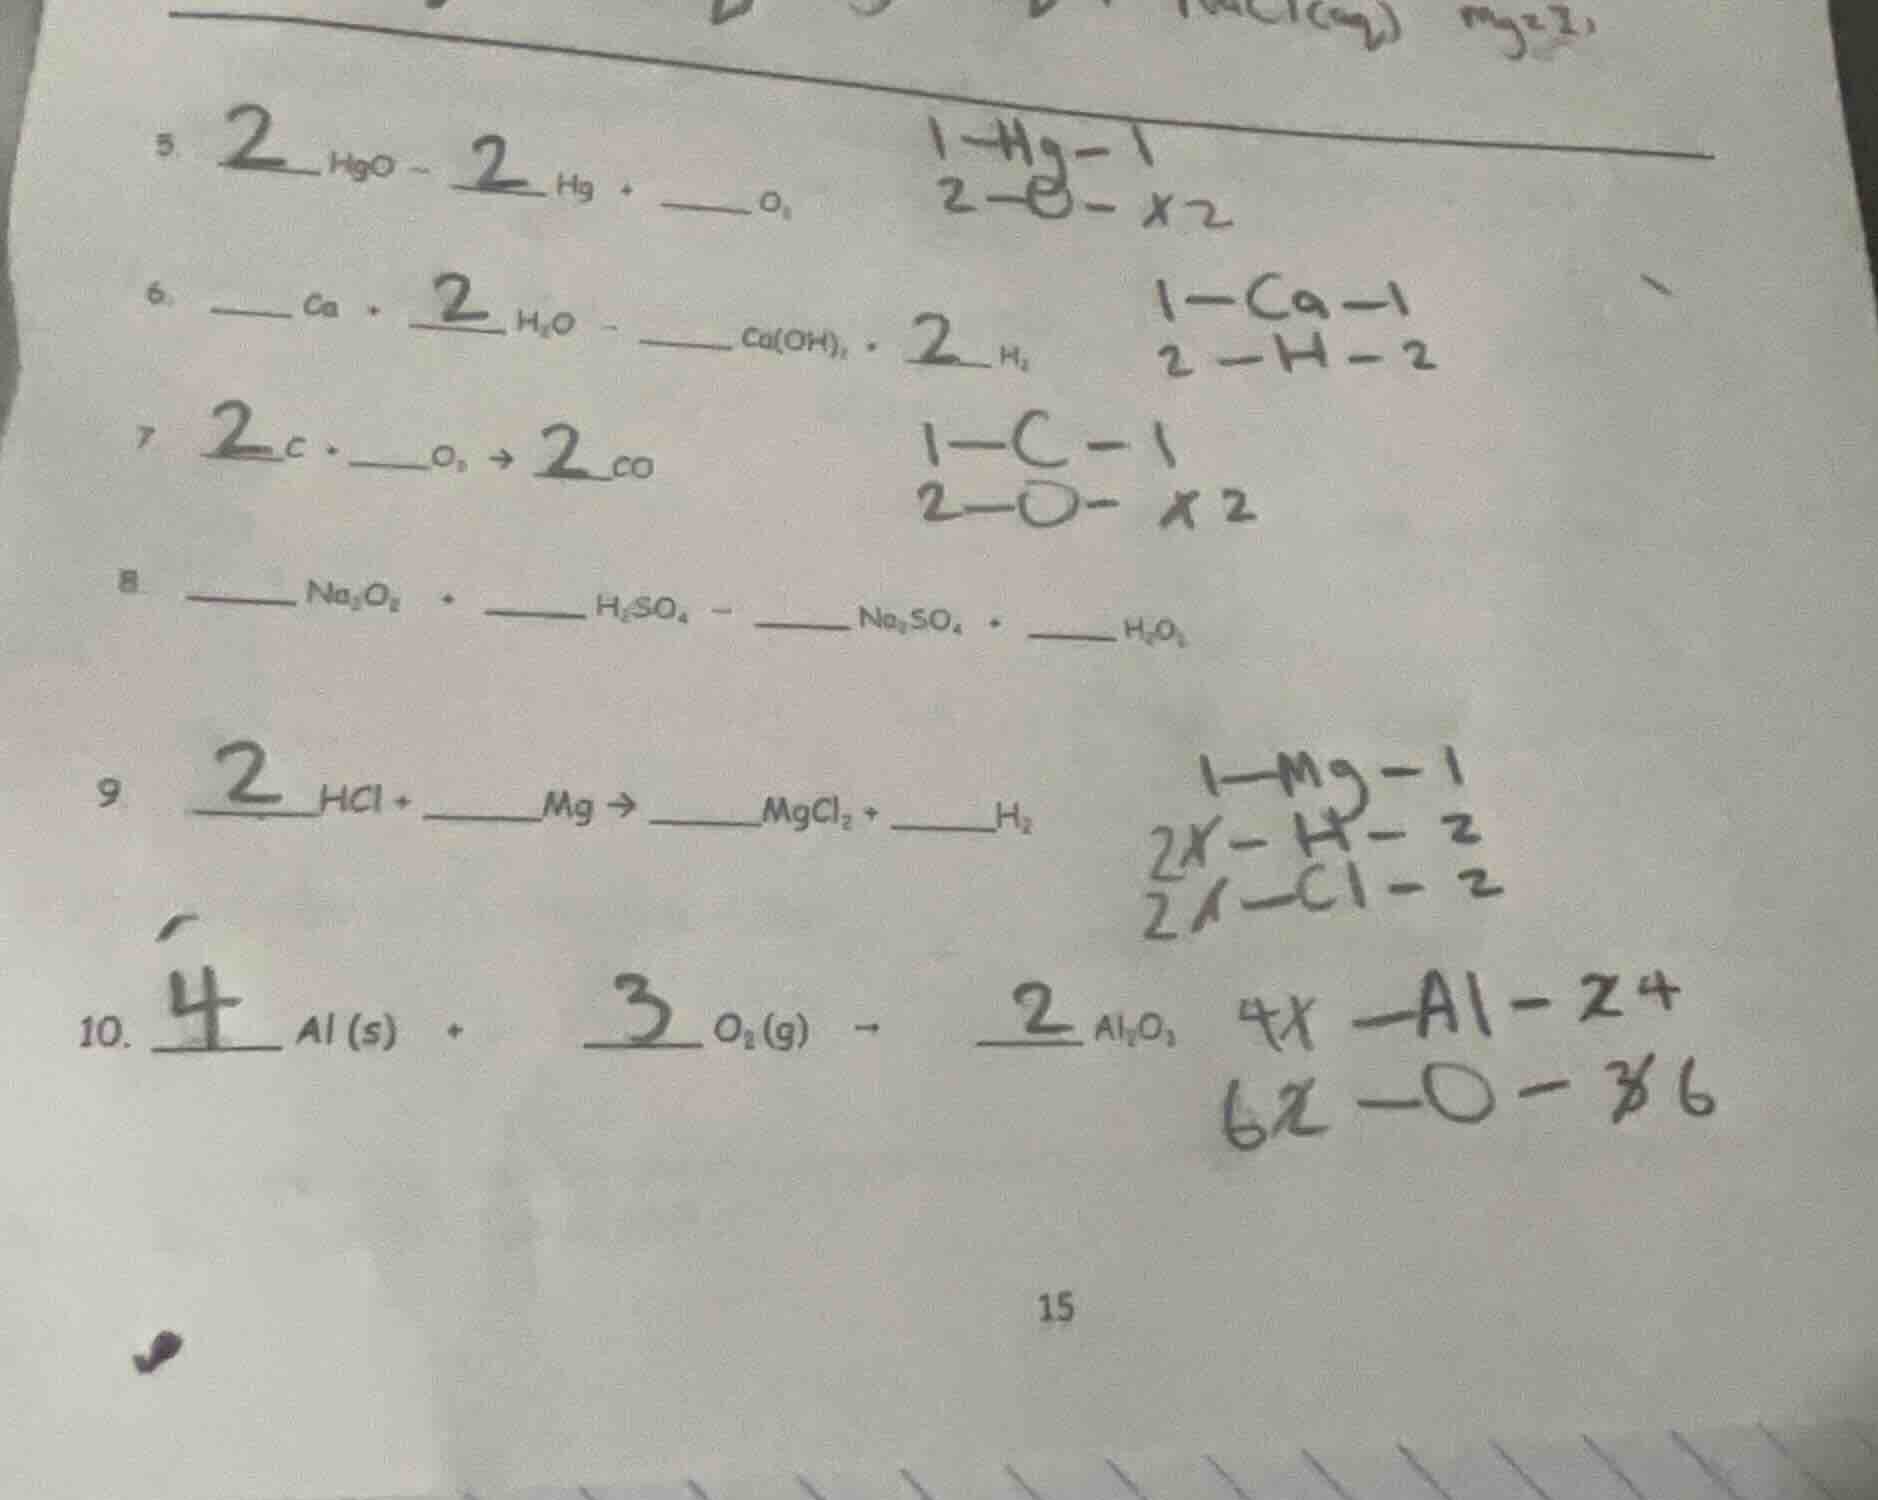 NaCl(aq) mg=1,
5. 2 HgO - 2 Hg + ___ O₂ 1-Hg-1
2-O- x 2
6. ___ Ca + 2 H₂O - ___ Ca(OH)₂ + 2 H₂ 1-Ca-1
2-H-2
7 2 C + ___ O₂ → 2 CO 1-C-1
2-O- x 2
8. ___ Na₂O₂ + ___ H₂SO₄ - ___ Na₂SO₄ + ___ H₂O₂
9 2 HCl + ___ Mg → ___ MgCl₂ + ___ H₂ 1-Mg-1
2x-H-2
2x-Cl-2
10. 4 Al (s) + 3 O₂ (g) → 2 Al₂O₃ 4x-Al-24
62-O-36
15